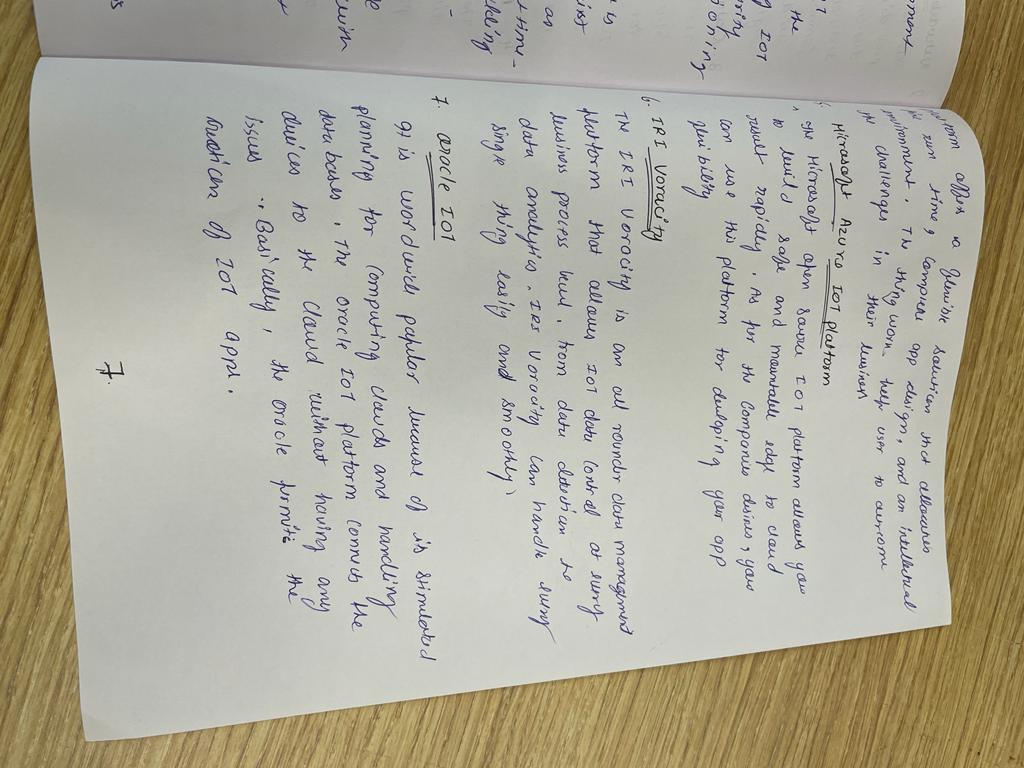 offers a flexible solution that allocates
run time, complete app design, and an intellectual
environment. The thing worx help user to overcome
the challenges in their business
Microsoft Azure IOT platform
The Microsoft open source IOT platform allows you
to build safe and mountable edge to cloud
result rapidly. As per the Companies desires, you
can use this platform for developing your app
flexibility
6. IRI Voracity
The IRI Vorocity is an all rounder data management
platform that allows IOT data control at every
business process level. from data detection to
data analytics. IRI Voracity can handle every
single thing easily and smoothly.
7. Oracle IOT
It is wordwide popular because of its stimulated
planning for computing clouds and handling
data bases. The oracle IOT platform connects the
devices to the cloud without having any
issues. Basically, the oracle permits the
creation of IOT apps.
7
the
IOT
is
as
time-
-
with